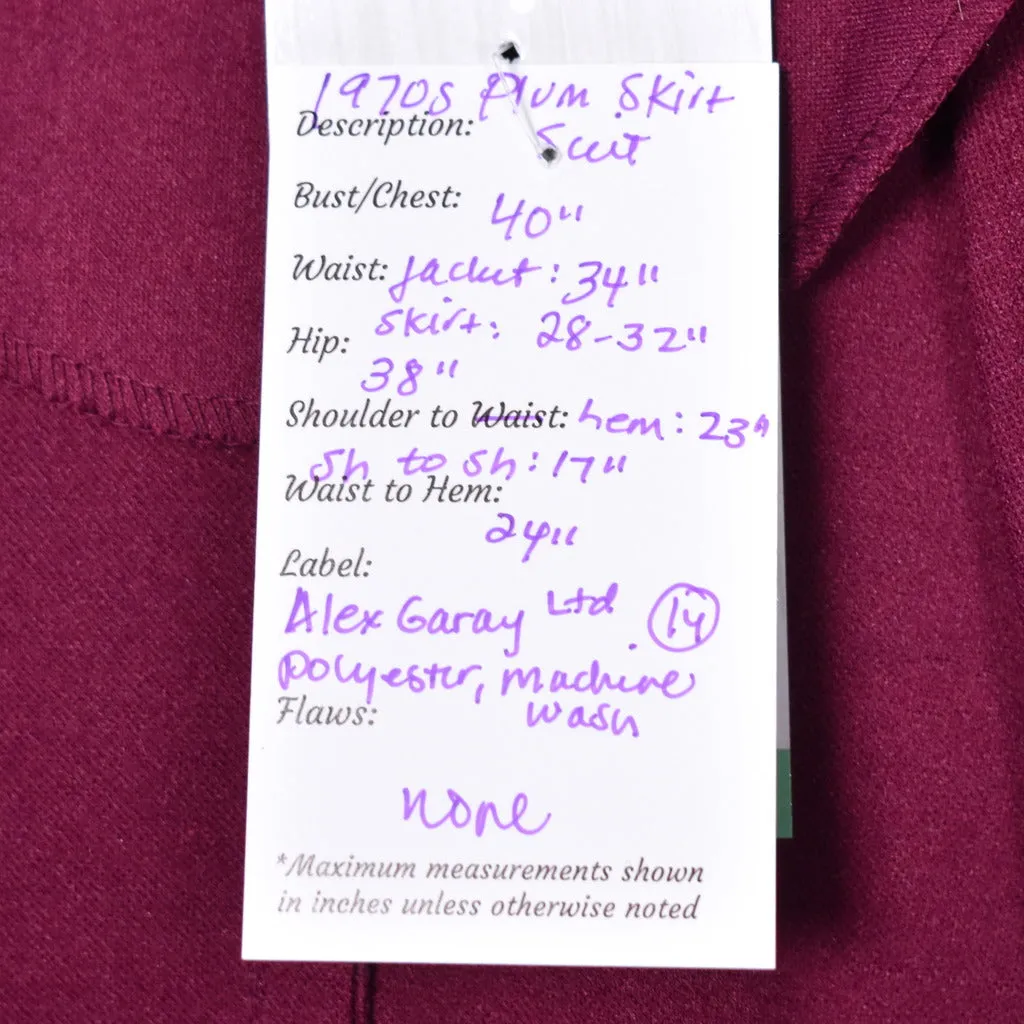 1970s Plum Skirt
Description: Suit
Bust/Chest: 40"
Waist: Jacket: 34"
Skirt: 28-32"
Hip:
38"
Shoulder to Waist: hem: 23"
Sh to Sh: 17"
Waist to Hem:
24"
Label:
Alex Garay Ltd. 14
polyester, machine
Flaws: wash
none
*Maximum measurements shown
in inches unless otherwise noted